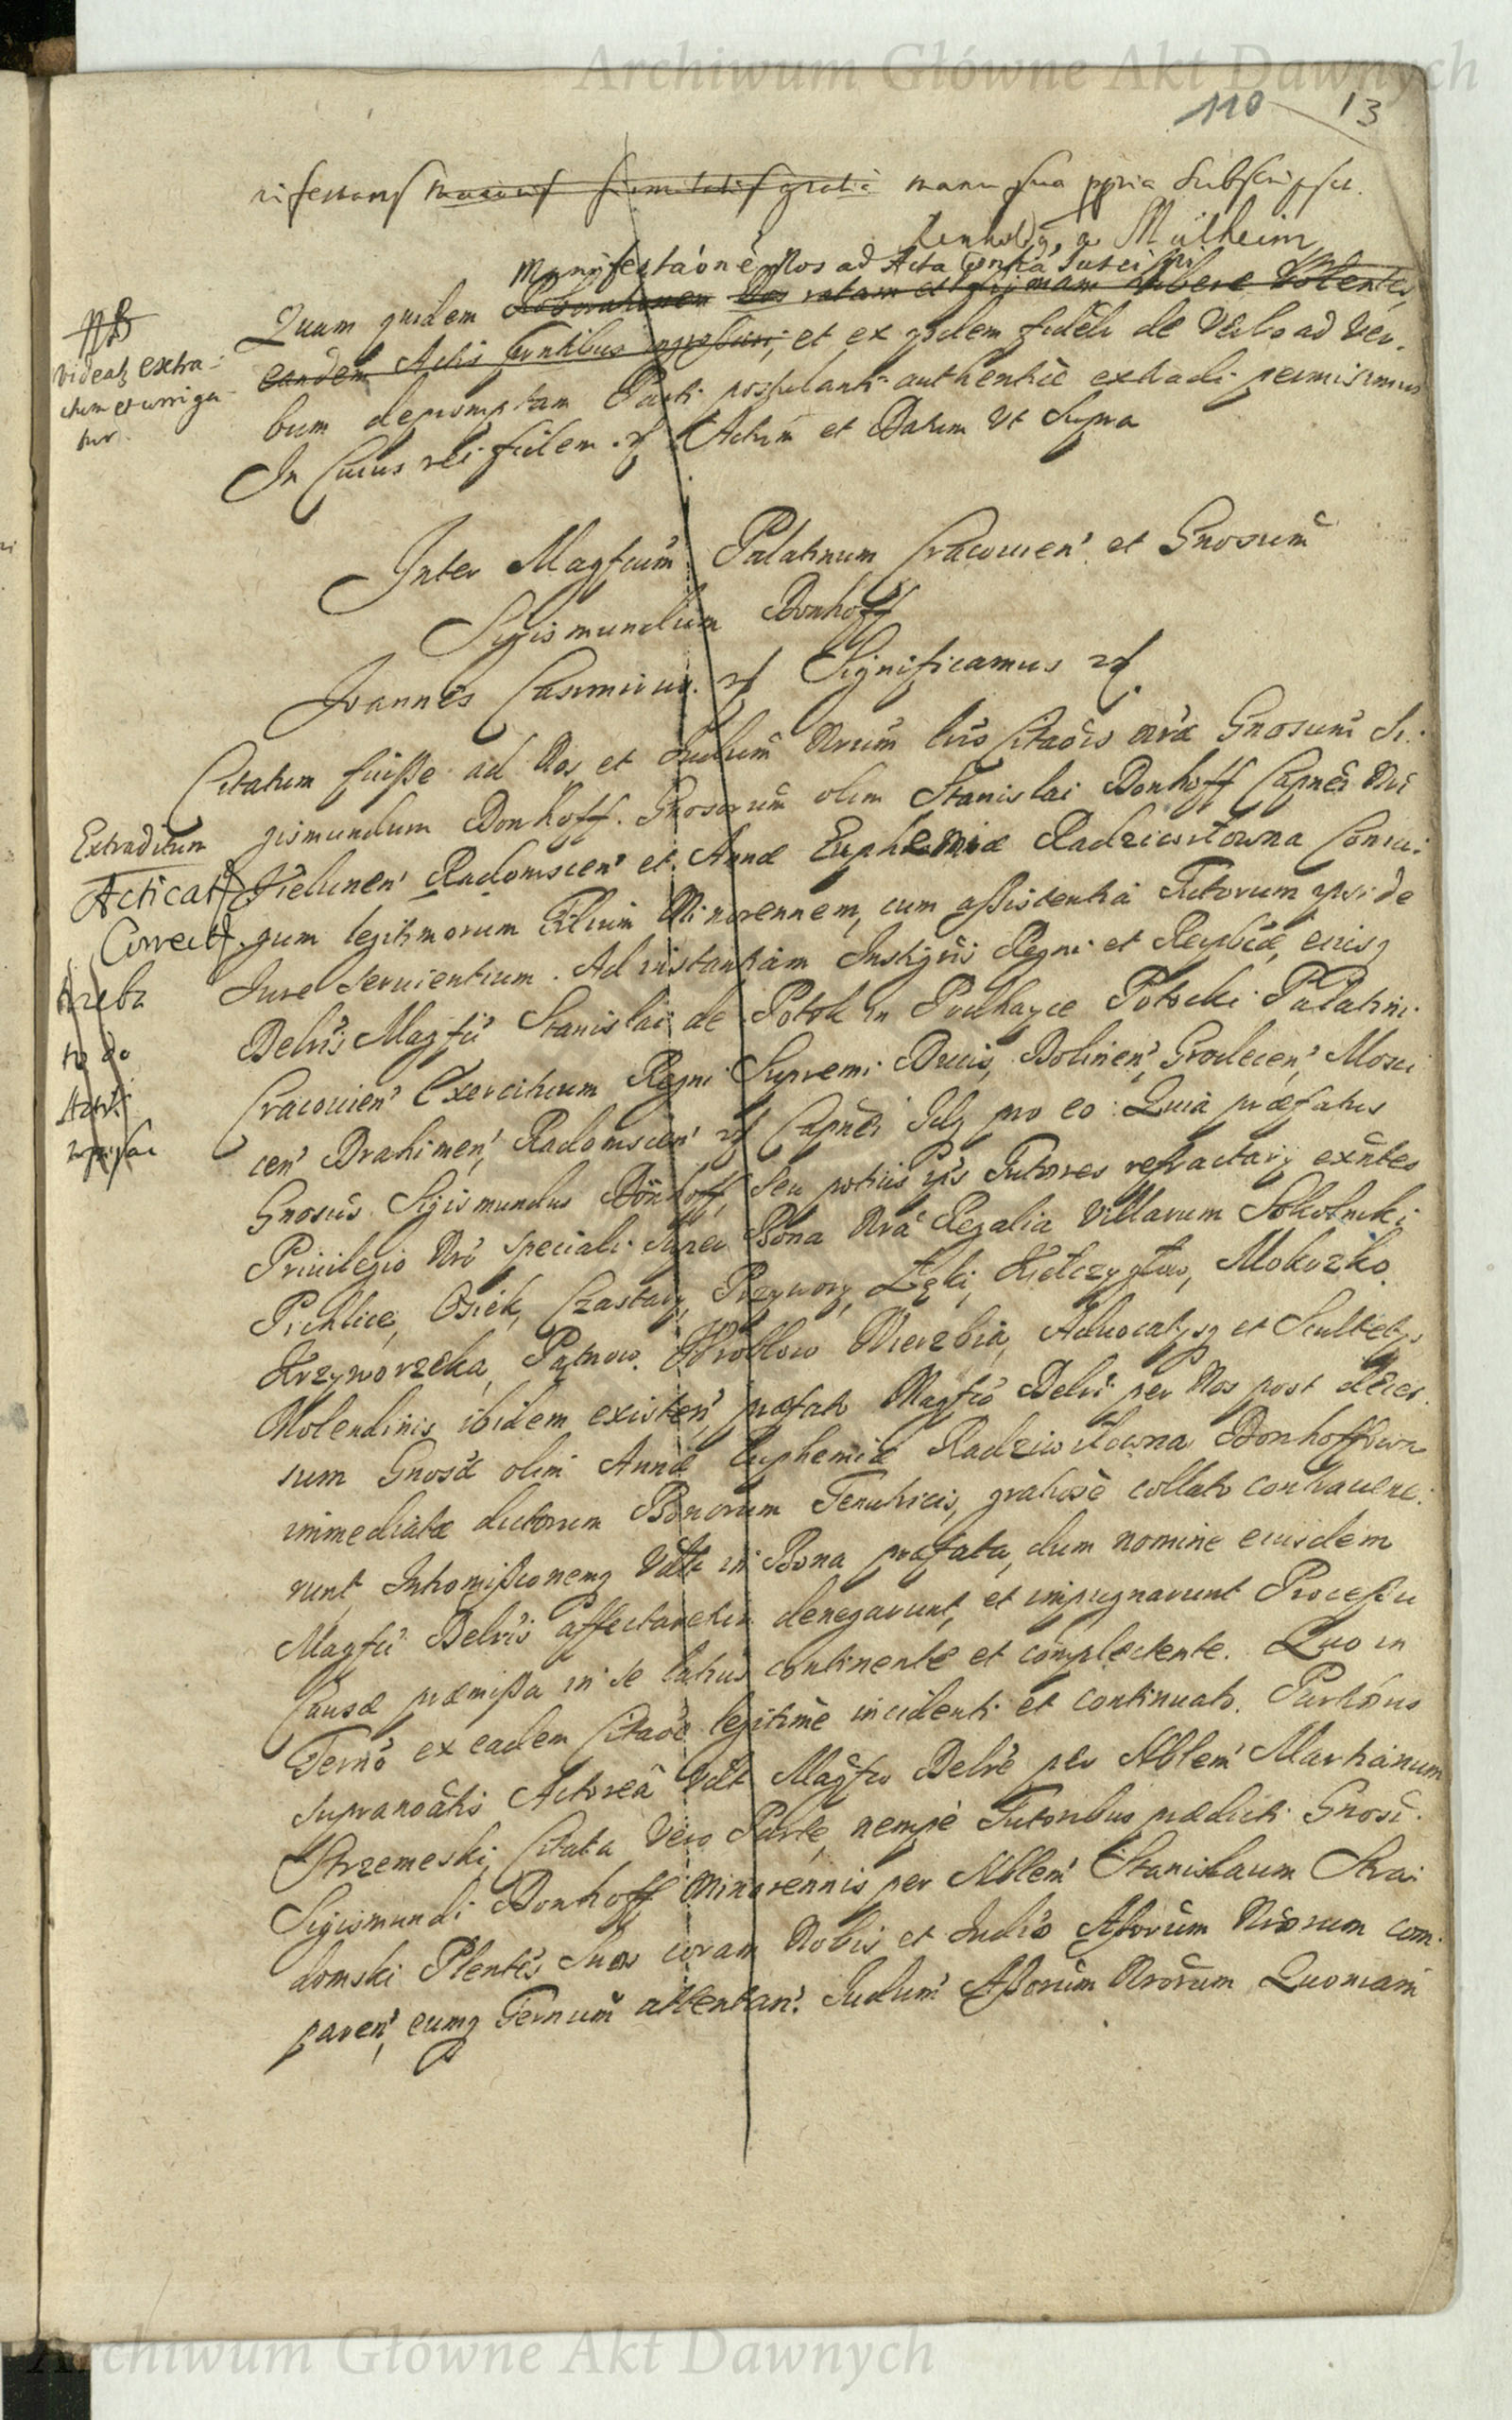 Archiwum Główne Akt Dawnych
110 13
nifestans maioris firmitatis gratia manu sua ppria subscripsit.
Reinhold9 a Mülheim
Manifestaónē Nos ad Acta pntia suscipi
Quam quidem Roborationem Nos ratam et firmam habere volentes
eandem Actis pntibus ingrossari, et ex ysdem fideli de Verbo ad Ver-
bum depromptam Parti postulanti authenticè extradi permisimus
In Cuius rei fidem. Actum et Datum Vt Supra
NB
videatz extra-
ctum et corriga-
tur.
Inter Magfcum Palatinum Cracouien' et Gnosum
Sigismundum Donhoff
Joannes Casimirus. Significamus
Citatum fuiße ad Nos et Judium Nrum Citaois nrae Gnosum Si-
gismundum Donhoff. Gnosorum olim Stanislai Donhoff Capnei Nri
Vielunen' Radomscen' et Annae Euphemiae Radziwiłowna Coniu-
gum legitimorum Filium Minorennem, cum aßistentia Tutorum ipsi de
Jure seruientium. Ad instantiam Instigris Regni et Reipbcae, eiusq
Delris Magfci Stanislai de Potok in Podhayce Potocki Palatini
Cracouien' Exercituum Regni Supremi Ducis, Bolinen', Grodecen', Mosci
cen' Drahimen', Radomscen' Capnei Idq pro eo: Quia praefatus
Gnosus Sigismundus Dönhoff, seu potius ipsius Tutores refractarij exntes
Priuilegio Nro speciali super Bona Nra Regalia Villarum Sokolniki
Pichlice, Osiek, Czastary, Przywory, Łęki, Kiełczygłow, Mokrzko
Krzyworzeka, Pątnow, Wroblow Wierzbia, Aduocatysq et Scultetys
Molendinis ibidem existen', praefato Magfco Delri per Nos post deces-
sum Gnosae olim Annae Euphemiae Radziwiłowna Donhoffowa
immediatae dictorum Bonorum Tenutricis, gratiosè collato contrauene-
runt, Intromißionemq Vdtt in Bona praefata, dum nomine eiusdem
Magfci Delris affectaretur denegarunt, et impugnarunt Proceßu
Causae praemißa in se latius continente et complectente. Quo in
Termo ex eadem Citaoe legitimè incidenti et continuato. Partibus
supranoatis Actorea Vdtt Magfco Delre per Nblem' Martianum
Strzemeski, Citata Vero Parte, nempè Tutoribus praedicti Gnosi
Sigismundi Donhoff Minorennis per Nblem' Stanislaum Stra-
domski Plentes suos coram Nobis et Judio Aßorum Nrorum com-
paren', eumq Ternum attentan'. Judium Aßorum Nrorum Quoniam
Extraditum
Acticat
Correct
trzeba
to do
Act
wpisac
Archiwum Główne Akt Dawnych